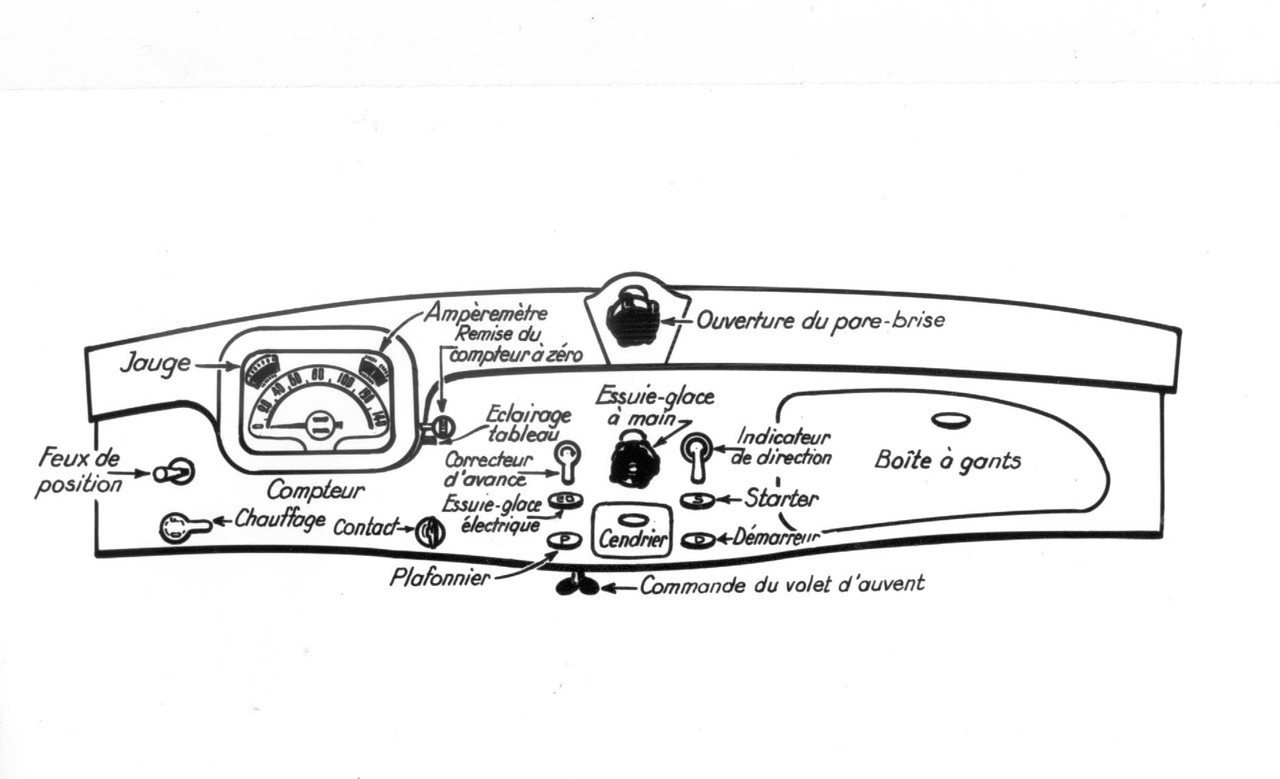 Ampèremètre
Remise du
compteur à zéro
Ouverture du pare-brise
Jauge
0 20 40 50 60 80 100 120 140
Essuie-glace
à main
Eclairage
tableau
Indicateur
de direction
Boîte à gants
Feux de
position
Correcteur
d'avance
Compteur
Essuie-glace
électrique
EG
S
Starter
Chauffage
Contact
P
Cendrier
D
Démarreur
Plafonnier
Commande du volet d'auvent